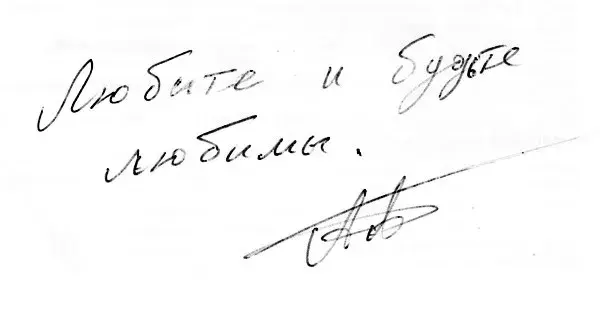 Любите и будьте
любимы.